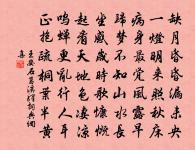 缺月昏昏漏未央
一燈明滅照秋床
病身最覺風露早
歸夢不知山水長
坐感歲時歌慷慨
起看天地色淒涼
鳴蟬更亂行人耳
正抱疏桐葉半黃
王安石葛溪驛詞典網